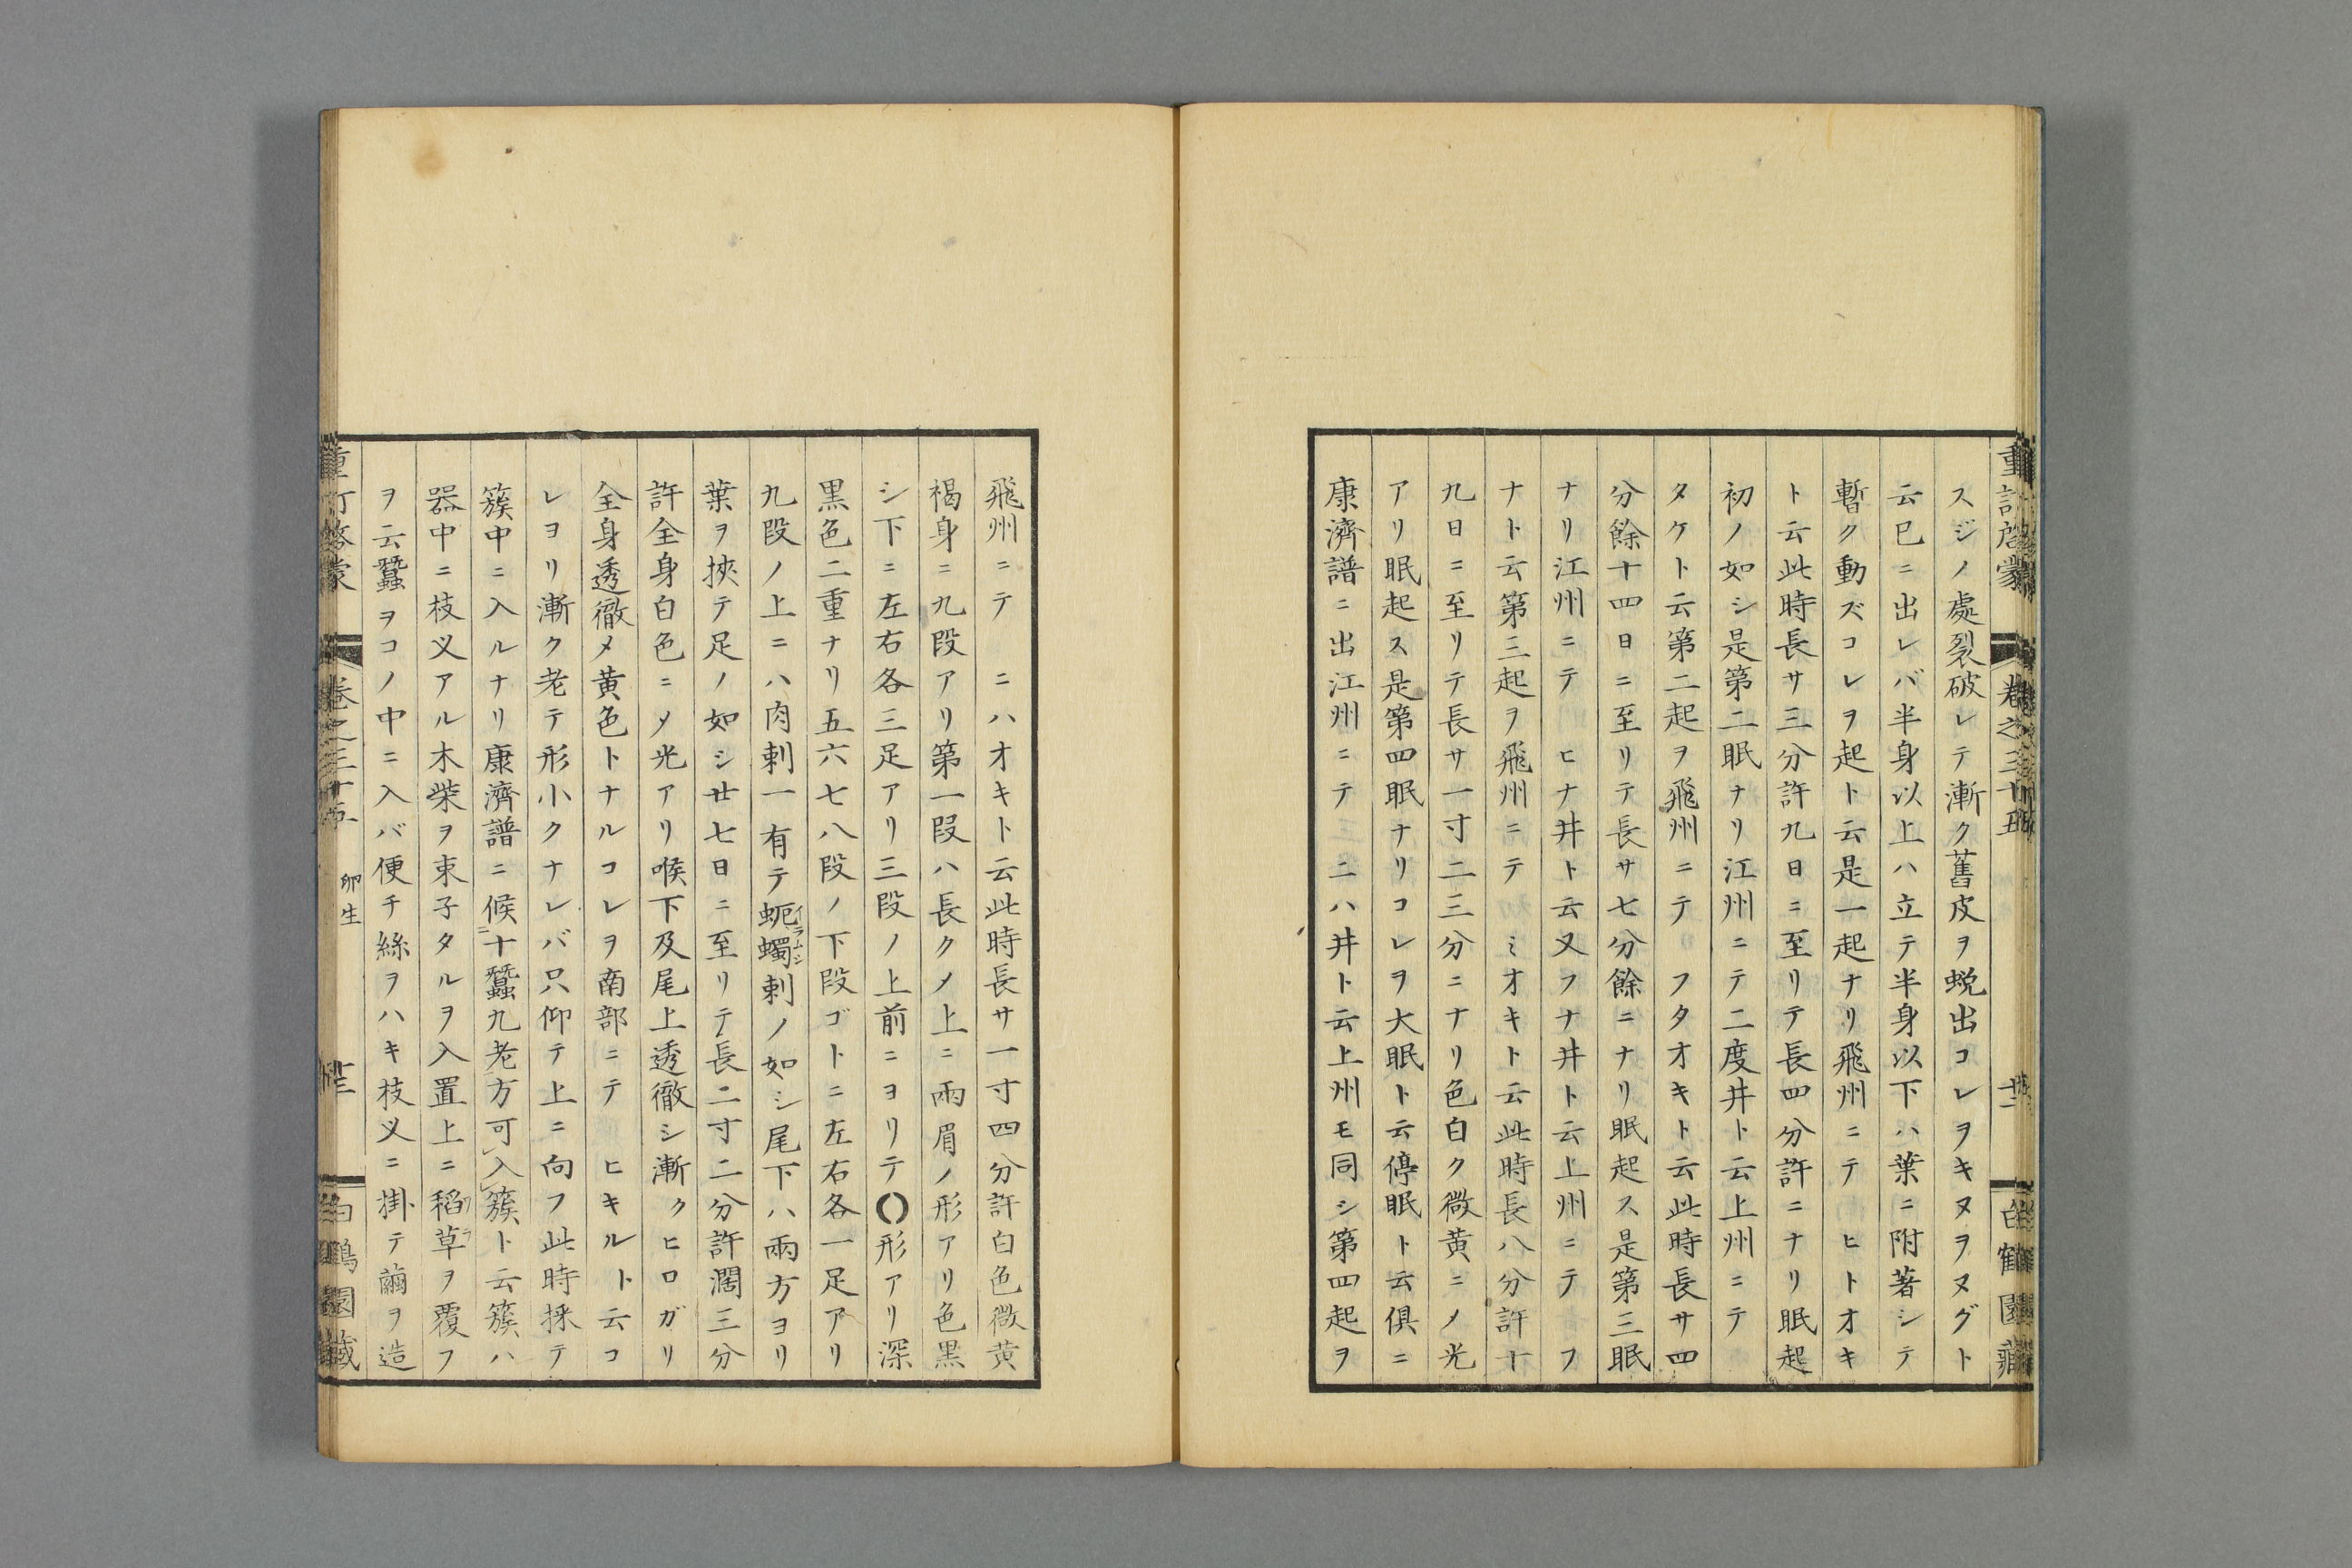 スジノ處裂破レテ漸ク舊皮ヲ蛻出コレヲキヌヲヌグト
云已ニ出レバ半身以上ハ立テ半身以下ハ葉ニ附著シテ
暫ク動ズコレヲ起ト云是一起ナリ飛州ニテ ヒトオキ
ト云此時長サ三分許九日ニ至リテ長四分許ニナリ眠起
初ノ如シ是第二眠ナリ江州ニテ二度井ト云上州ニテ
タケト云第二起ヲ飛州ニテ フタオキト云此時長サ四
分餘十四日ニ至リテ長サ七分餘ニナリ眠起ス是第三眠
ナリ江州ニテ ヒナ井ト云又フナ井ト云上州ニテ フ
ナト云第三起ヲ飛州ニテ ミオキト云此時長八分許十
九日ニ至リテ長サ一寸二三分ニナリ色白ク微黄ニメ光
アリ眠起ス是第四眠ナリコレヲ大眠ト云停眠ト云俱ニ
康濟譜ニ出江州ニテ ニハ井ト云上州モ同シ第四起ヲ
飛州ニテ ニハオキト云此時長サ一寸四分許白色微黄
褐身ニ九段アリ第一段ハ長クメ上ニ兩眉ノ形アリ色黒
シ下ニ左右各三足アリ三段ノ上前ニヨリテ形アリ深
黒色二重ナリ五六七八段ノ下段ゴトニ左右各一足アリ
九段ノ上ニハ肉刺一有テ蚅蠋刺ノ如シ尾下ハ兩方ヨリ
葉ヲ挾テ足ノ如シ廿七日ニ至リテ長二寸二分許濶三分
許全身白色ニメ光アリ喉下及尾上透徹シ漸クヒロガリ
全身透徹メ黄色トナルコレヲ南部ニテ ヒキルト云コ
レヨリ漸ク老テ形小クナレバ只仰テ上ニ向フ此時採テ
簇中ニ入ルナリ康濟譜ニ候十蠶九老方可入簇ト云簇ハ
器中ニ枝义アル木柴ヲ束子タルヲ入置上ニ稻草ヲ覆フ
ヲ云蠶ヲコノ中ニ入バ便チ絲ヲハキ枝义ニ掛テ繭ヲ造
卵生